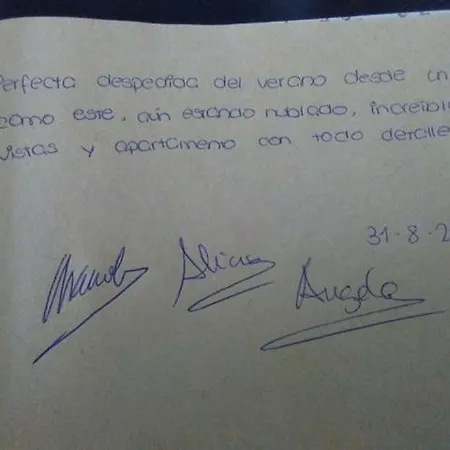 Perfecta despedida del verano desde un
como este, aún estando nublado, increible
vistas y apartamento con todo detalle
31-8-2
Alicia
Angela